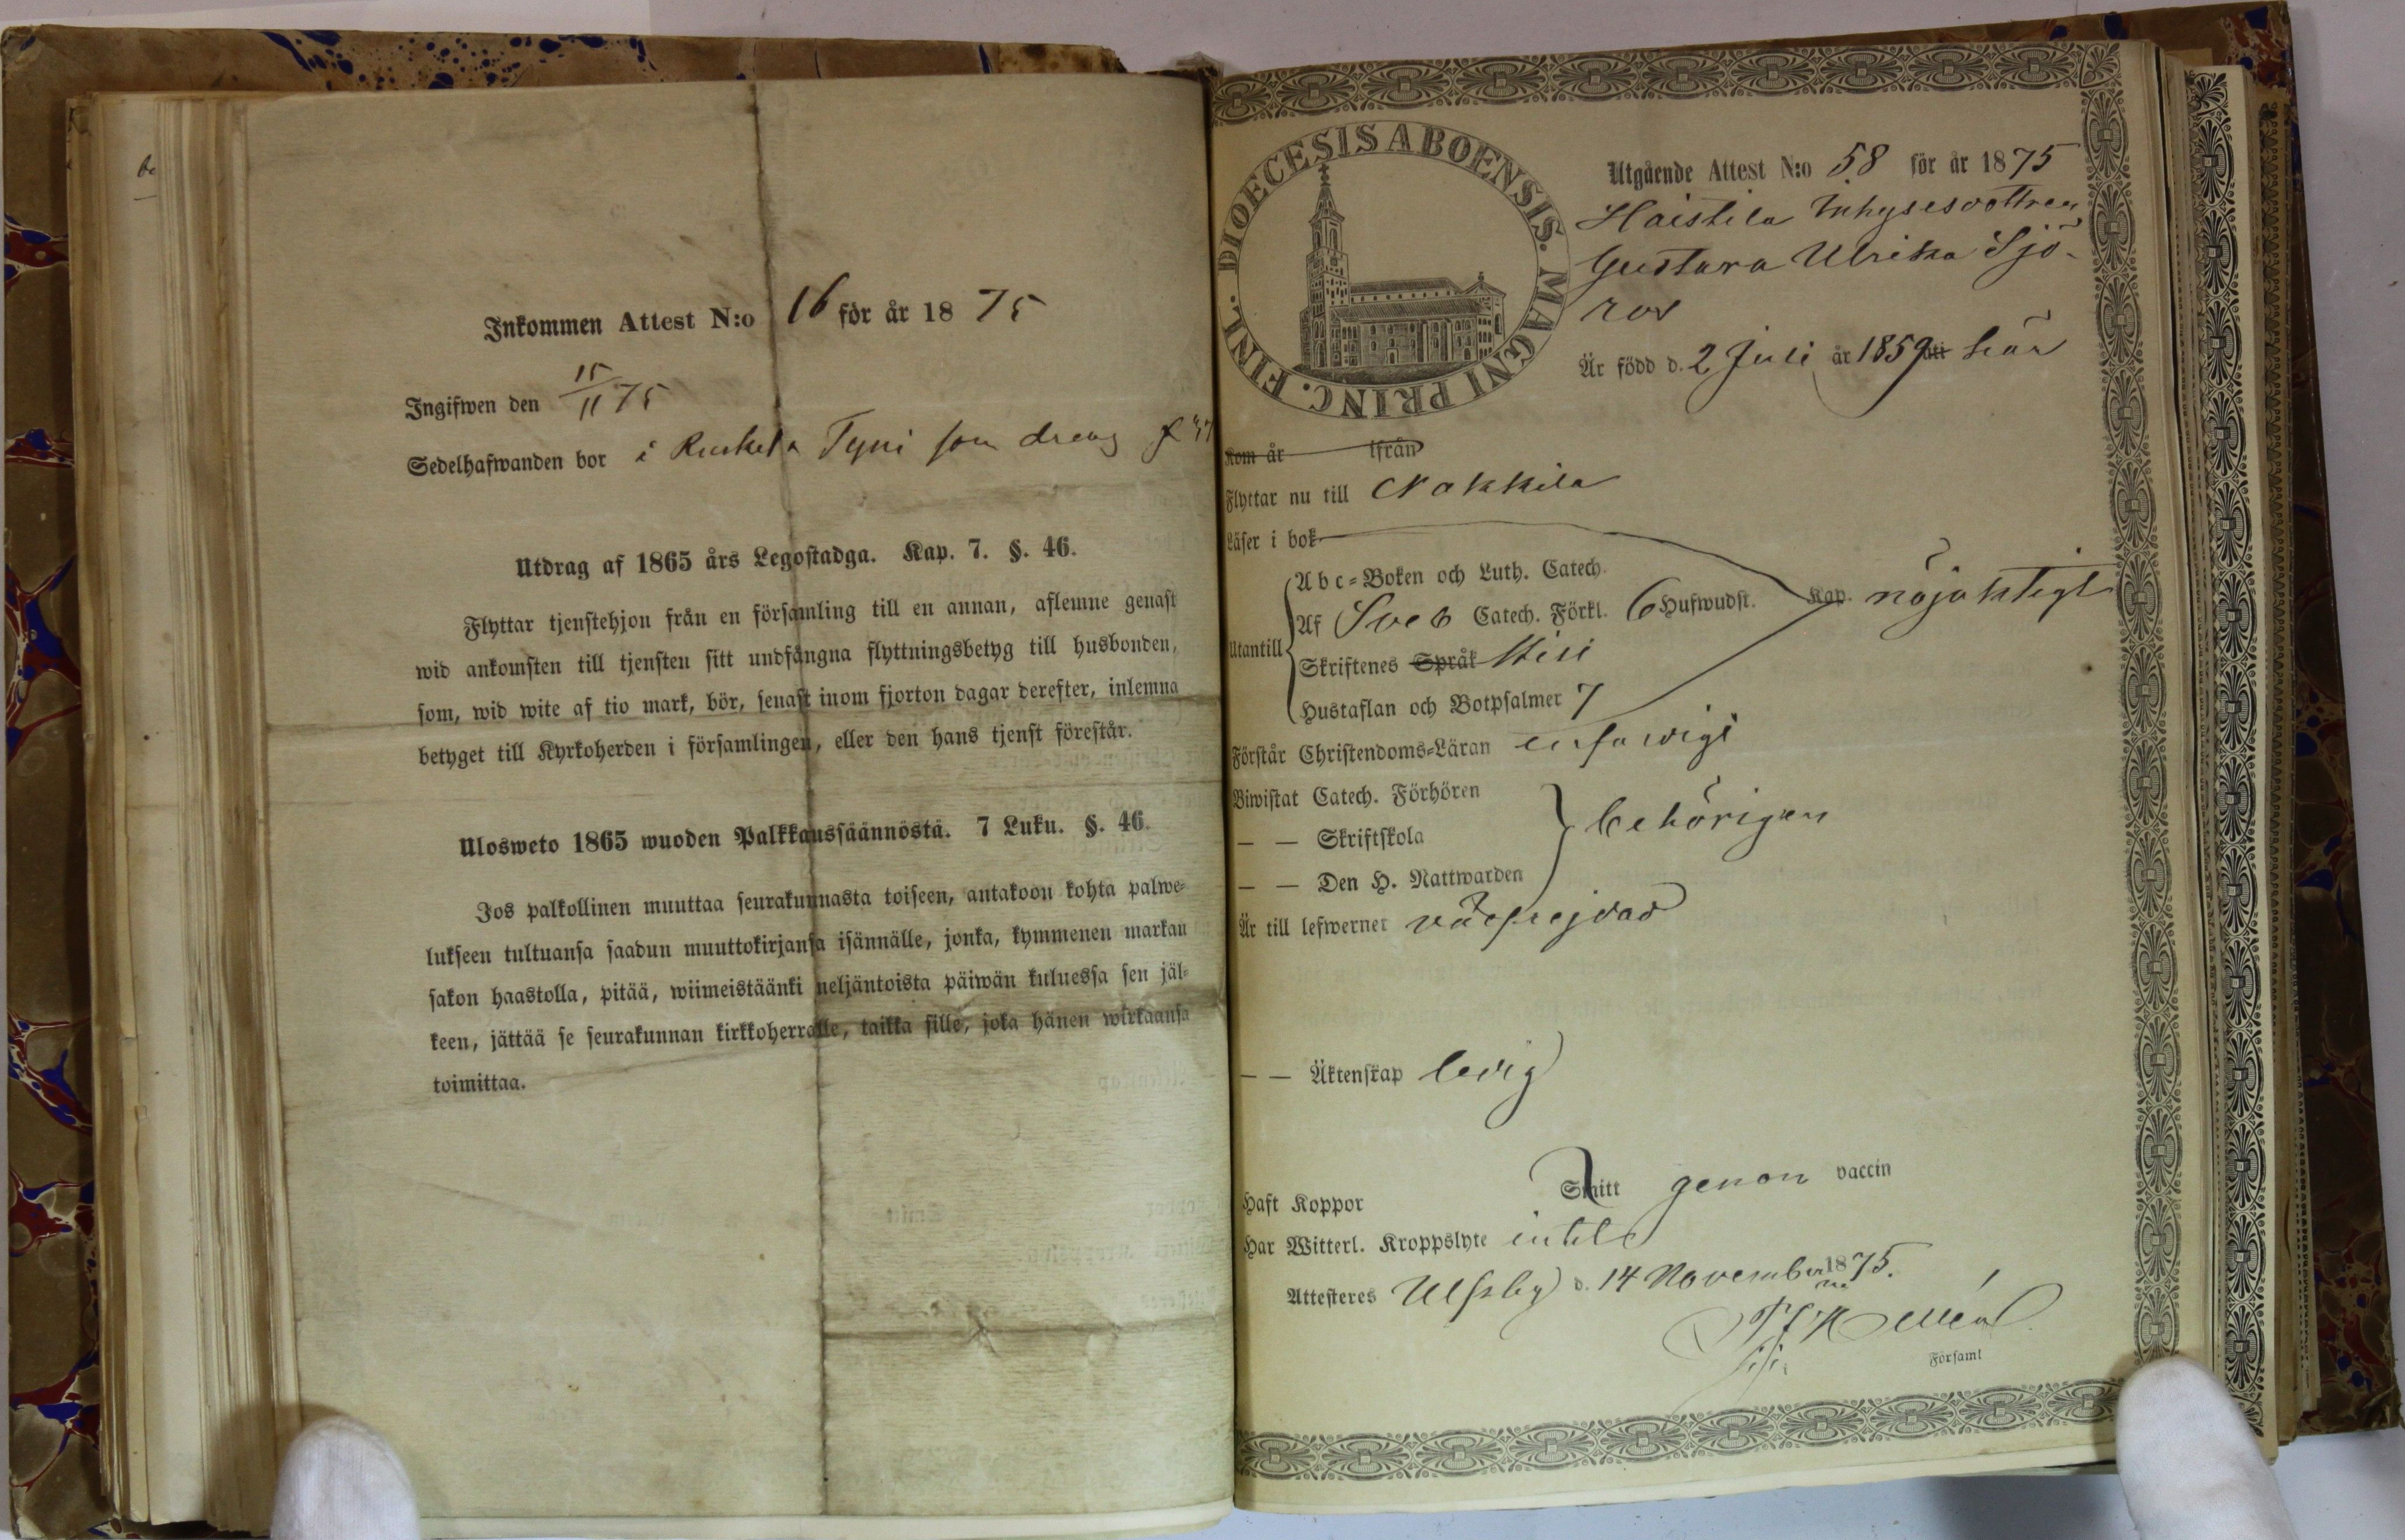 Inkommen Attest N:o 16 för år 1875
Ingifwen den 15/11 75
Sedelhafwanden bor i Ruskela Tyni som dreng
Utdrag af 1865 års Legostadga. Kap. 7. §. 46.
Flyttar tjenstehjon från en församling till en annan, aflemne genast
wid ankomsten till tjensten sitt undfångna flyttningsbetyg till husbonden,
som, wid wite af tio mark, bör, senast inom fjorton dagar derefter, inlemna
betyget till Kyrkoherden i församlingen, eller den hans tjenst förestår.
Ulosweto 1865 wuoden Palkkaussäännöstä. 7 Luku. §. 46.
Jos palkollinen muuttaa seurakunnasta toiseen, antakoon kohta palwe-
lukseen tultuansa saadun muuttokirjansa isännälle, jonka, kymmenen markan
sakon haastolla, pitää, wiimeistäänki neljäntoista päiwän kuluessa sen jäl-
keen, jättää se seurakunnan kirkkoherralle, taikka sille, joka hänen wirkaansa
toimittaa.
DIOECESIS ABOENSIS. MAGNI PRINC. FINL.
Utgående Attest N:o 58 för år 1875
Haistila Inhysesdottren
Gustava Ulrika Sjö-
ros
Är född d. 2 Juli år 1859 uti här
Kom år ifrån
Flyttar nu till Nakkila
Läser i bok
Abc-Boken och Luth. Catech.
Af Sveb Catech. Förkl. 6 Hufwudst. Kap. nöjaktigt
Utantill
Skriftenes Språk
Hustaflan och Botpsalmer 7
Förstår Christendoms-Läran enfawigt
Biwistat Catech. Förhören
— — Skriftskola behörigen
— — Den H. Nattwarden
Är till lefwernet väfrejdad
— — Äktenskap ledig
Haft Koppor Smitt genom vaccin
Har Witterl. Kroppslyte intet
Attesteres Ulfsby d. 14 November 1875.
Församl